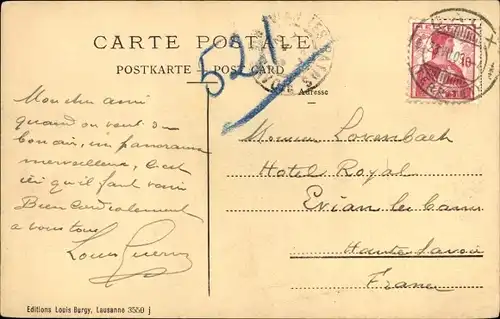 CARTE POSTALE
POSTKARTE — POST CARD
521
Adresse
10
Mon cher ami
quand on veut du
bon air, un panorama
merveilleux, c'est
ici qu'il faut venir
Bien cordialement
a vous tous
Louis
Monsieur
Hotel Royal
Evian les bains
Haute Savoie
France
Editions Louis Burgy, Lausanne 3550 j